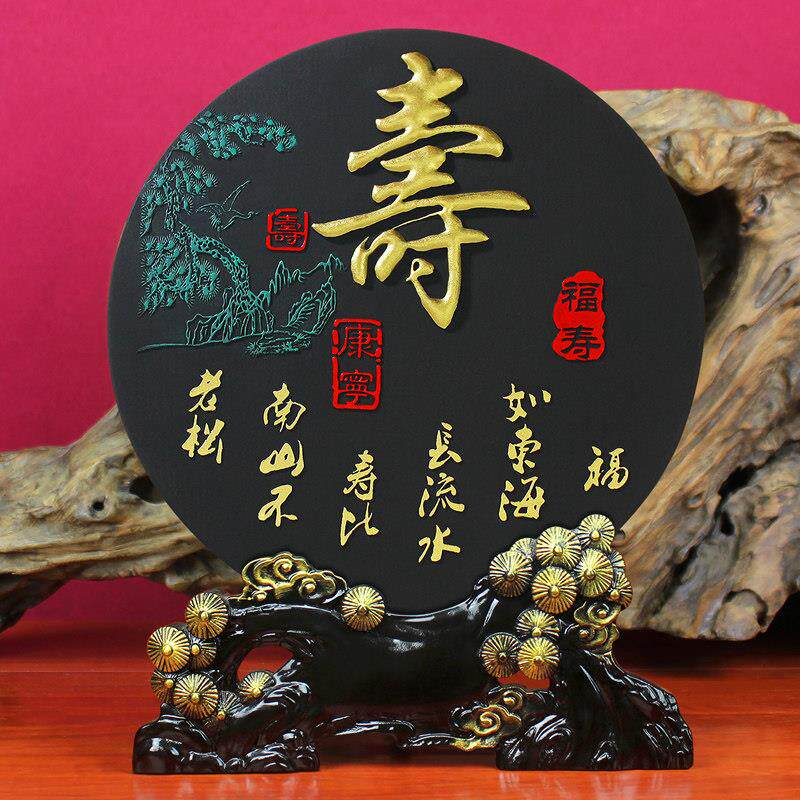 壽
壽
福寿
康寧
福
如東海
長流水
寿比
南山不
老松